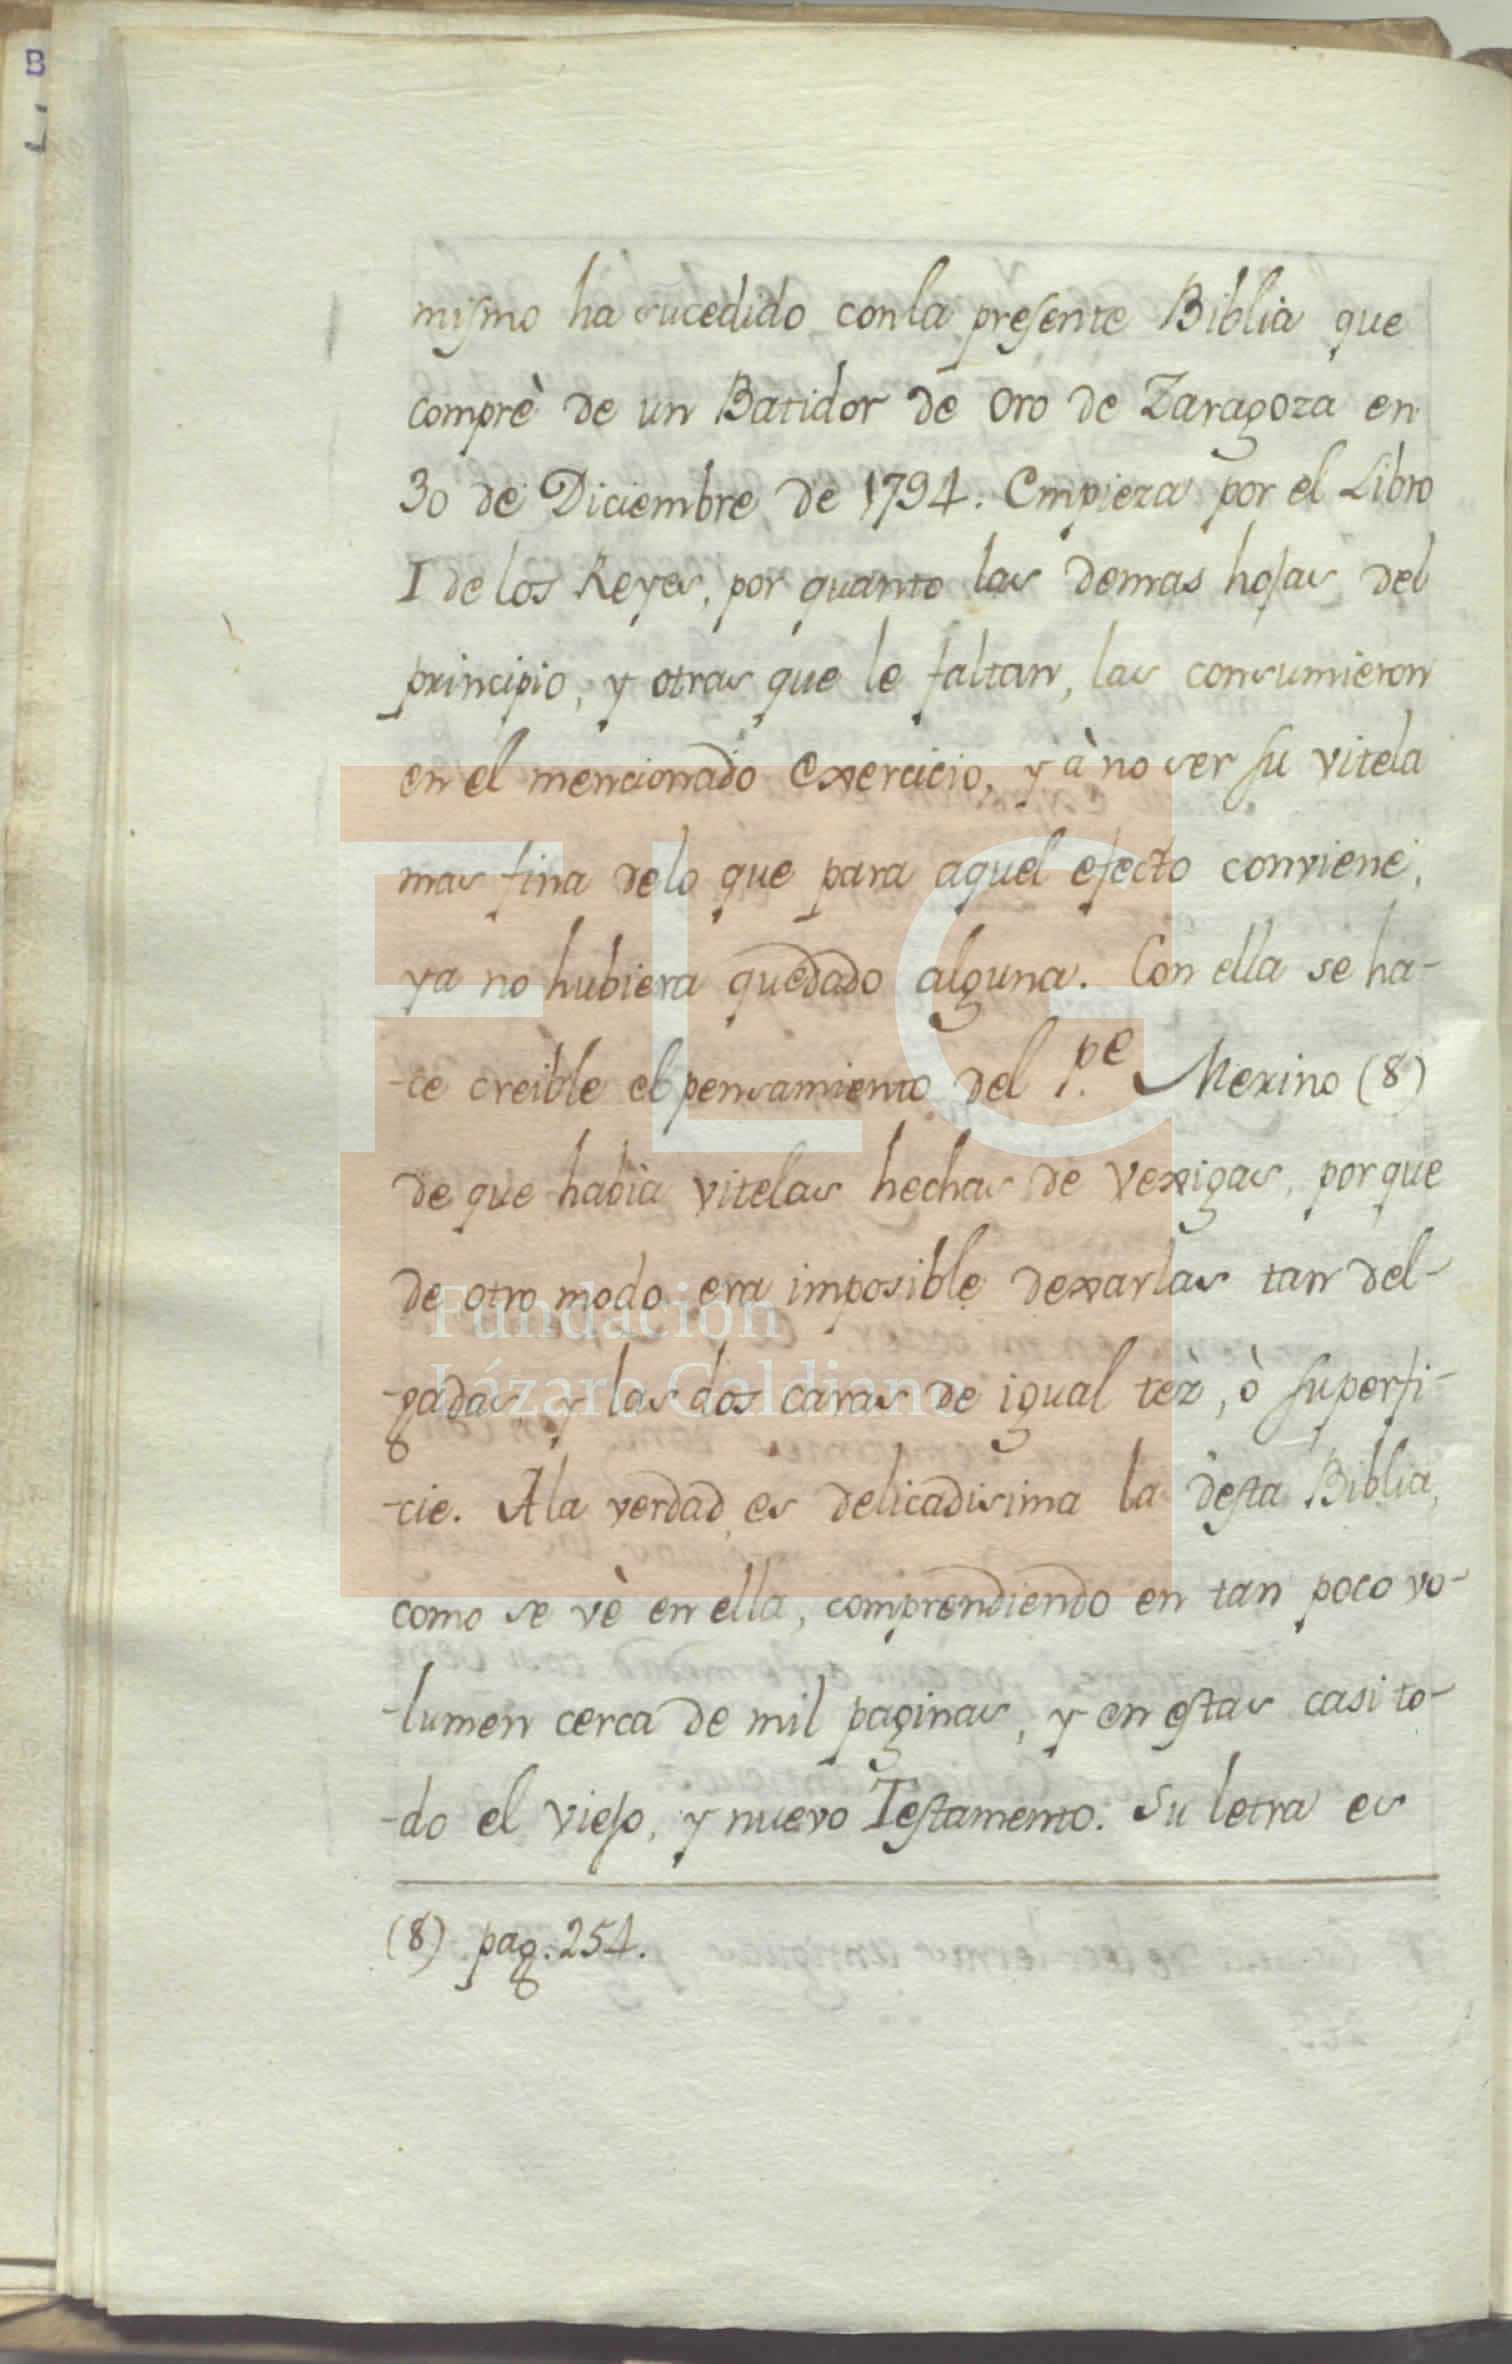 mismo ha sucedido conla presente Biblia que
comprè de un Batidor de oro de Zaragoza en
30 de Diciembre de 1794. Empieza por el Libro
I de los Reyes, por quanto las demas hojas del
principio, y otras que le faltan, las consumieron
en el mencionado exercicio, y à no ser su vitela
mas fina delo que para aquel efecto conviene,
ya no hubiera quedado alguna. Con ella se ha-
-ce creible el pensamiento del P.pe Merino (8)
de que habia vitelas hechas de vexigas, porque
de otro modo era imposible dexarlas tan del-
-gadas y las dos caras de igual tèz, ò superfi-
-cie. Ala verdad es delicadisima la desta Biblia,
como se vè en ella, comprendiendo en tan poco vo-
-lumen cerca de mil paginas, y en estas casi to-
-do el viejo, y nuevo Testamento. Su letra es
(8) pag. 254.
FLG
Fundación
Lázaro Galdiano
B